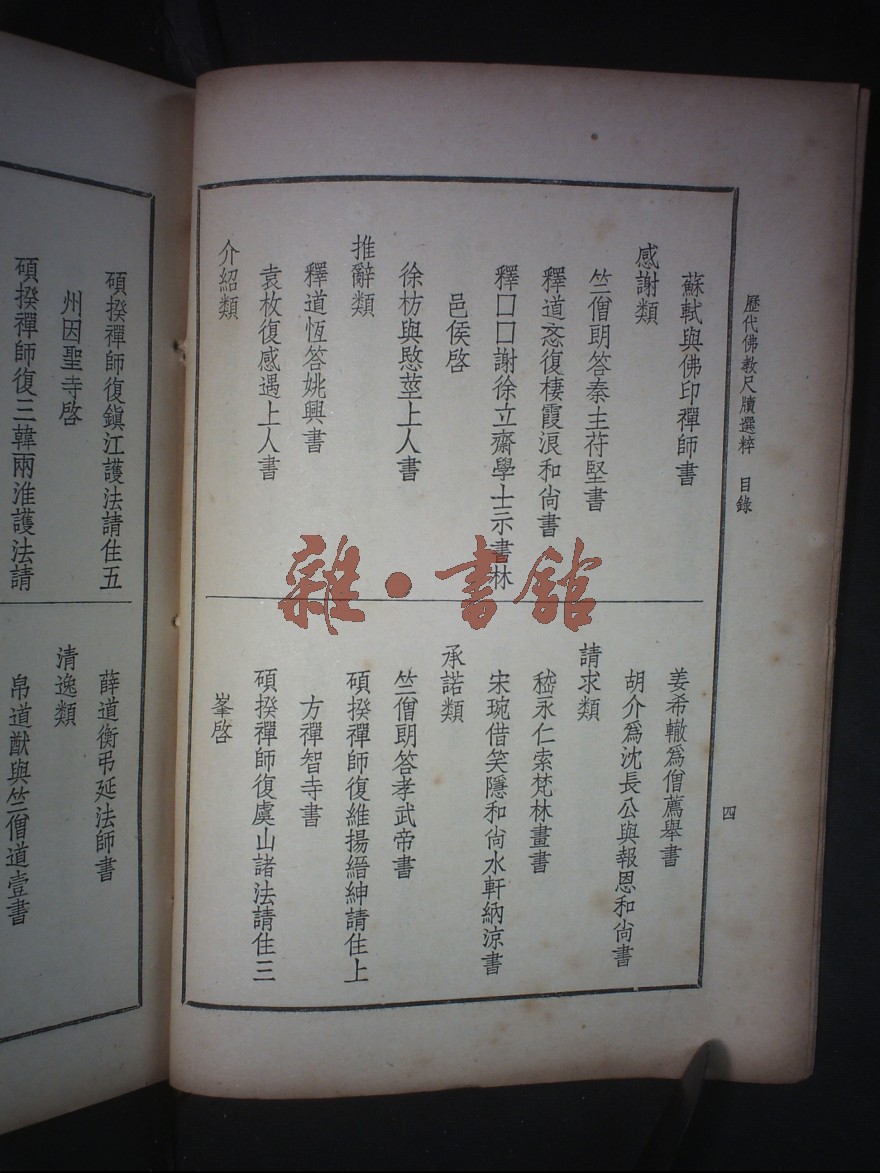 歷代佛教尺牘選粹　目錄
四
蘇軾與佛印禪師書
感謝類
竺僧朗答秦主苻堅書
釋道忞復棲霞浪和尙書
釋口口謝徐立齋學士示書林
邑侯啓
徐枋與愍莖上人書
推辭類
釋道恆答姚興書
袁枚復感遇上人書
介紹類
姜希轍爲僧薦舉書
胡介爲沈長公與報恩和尙書
請求類
嵇永仁索梵林畫書
宋琬借笑隱和尙水軒納涼書
承諾類
竺僧朗答孝武帝書
碩揆禪師復維揚縉紳請住上
方禪智寺書
碩揆禪師復虞山諸法請住三
峯啓
碩揆禪師復鎭江護法請住五
州因聖寺啓
碩揆禪師復三韓兩淮護法請
薛道衡弔延法師書
清逸類
帛道猷與竺僧道壹書
雜·書館